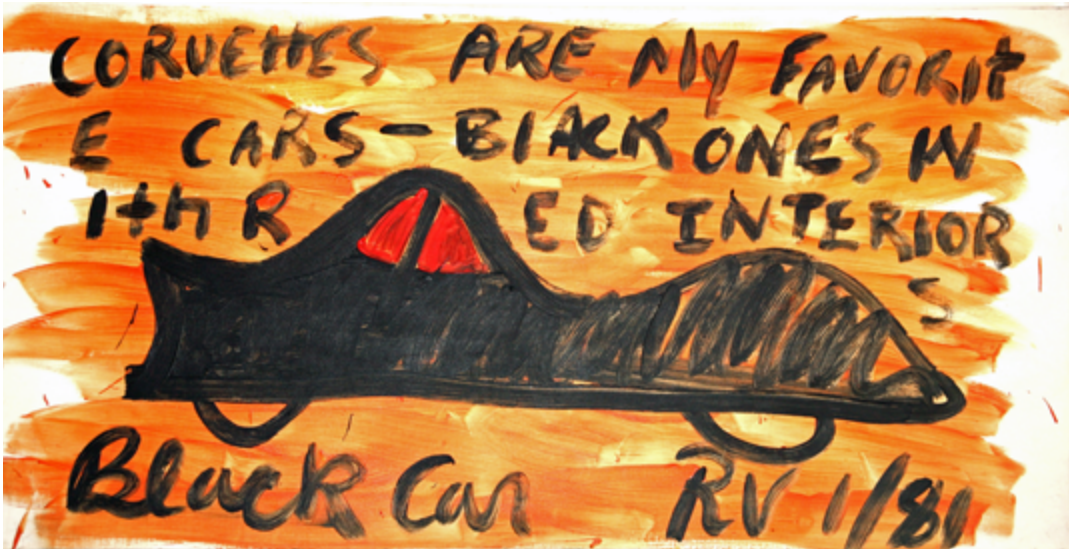 CORVETTES ARE MY FAVORIT
E CARS - BLACK ONES W
ITH R ED INTERIOR
S
Black Car RV 1/81